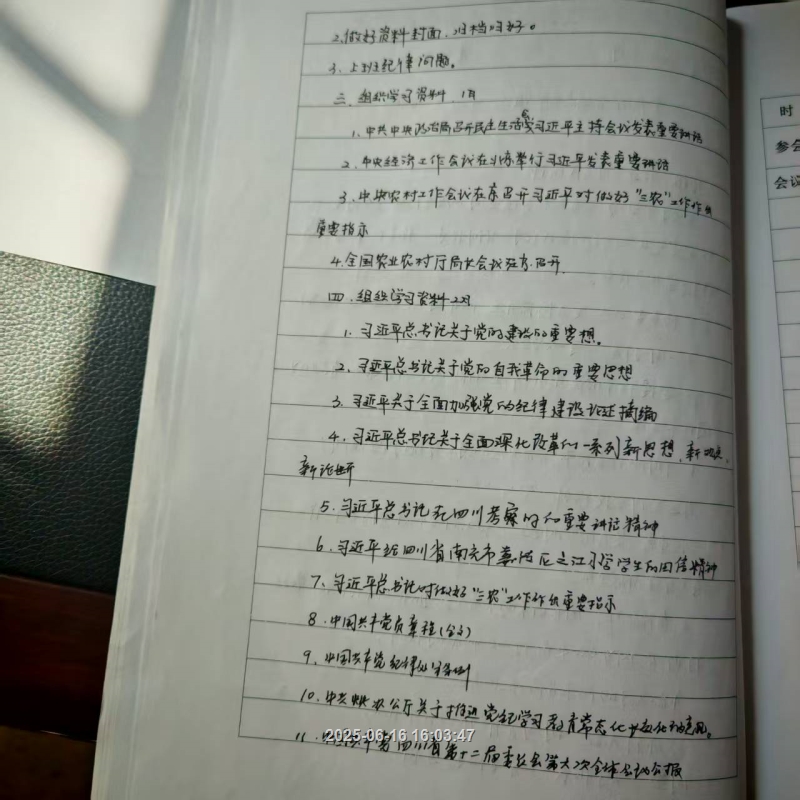 2.做好资料封面,归档归好。
3.上班纪律问题。
三.组织学习资料 1月
时
1.中共中央政治局召开民主生活会习近平主持会议发表重要讲话
参会
2.中央经济工作会议在北京举行习近平发表重要讲话
会议
3.中央农村工作会议在京召开习近平对做好"三农"工作作出
重要指示
4.全国农业农村厅局长会议在京召开
四.组织学习资料2月
1.习近平总书记关于党的建设的重要思想。
2.习近平总书记关于党的自我革命的重要思想
3.习近平关于全面加强党的纪律建设论述摘编
4.习近平总书记关于全面深化改革的一系列新思想、新观点、
新论断
5.习近平总书记在四川考察时的重要讲话精神
6.习近平给四川省南充市嘉陵区之江小学学生的回信精神
7.习近平总书记对做好"三农"工作作出重要指示
8.中国共产党章程(全文)
9.中国共产党纪律处分条例
10.中共中央办公厅关于推进党纪学习教育常态化长效化的意见。
11.中国共产党四川省第十二届委员会第六次全体会议公报
2025-06-16 16:03:47